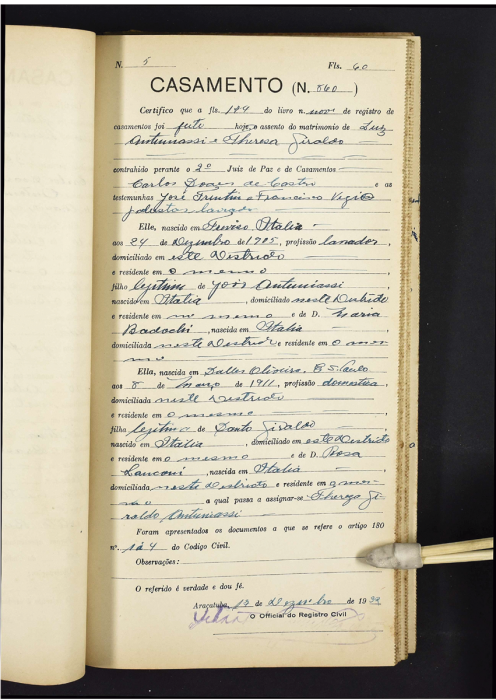 N. 5 Fls. 60
CASAMENTO (N. 860)
Certifico que a fls. 199 do livro n. nove de registro de
casamentos foi feito hoje, o assento do matrimonio de Luiz
Antuniassi e Thereza Giraldo
contrahido perante o 2º Juiz de Paz e de Casamentos
Carlos Soares de Castro e as
testemunhas José Trentin e Francisco
Elle, nascido em Treviso, Italia
aos 24 de Dezembro de 1905, profissão lavrador,
domiciliado em este Districto
e residente em o mesmo
filho legitimo de José Antuniassi
nascido em Italia, domiciliado neste Districto
e residente em no mesmo e de D. Maria
Badochi, nascida em Italia
domiciliada neste Districto e residente em o mes-
mo
Ella, nascida em Dalles Oliveira, E. S. Paulo
aos 8 de março de 1911, profissão domestica,
domiciliada neste Districto
e residente em o mesmo
filha legitima de Santo Giraldo
nascido em Italia, domiciliado em este Districto
e residente em o mesmo e de D. Rosa
nascida em Italia
domiciliada neste Districto e residente em o mes-
mo a qual passa a assignar-se Thereza Gi-
raldo Antuniassi
Foram apresentados os documentos a que se refere o artigo 180
nº. 1 á 4 do Codigo Civil.
Observações:
O referido é verdade e dou fé.
Araçatuba, 13 de Dezembro de 1932
O Official do Registro Civil